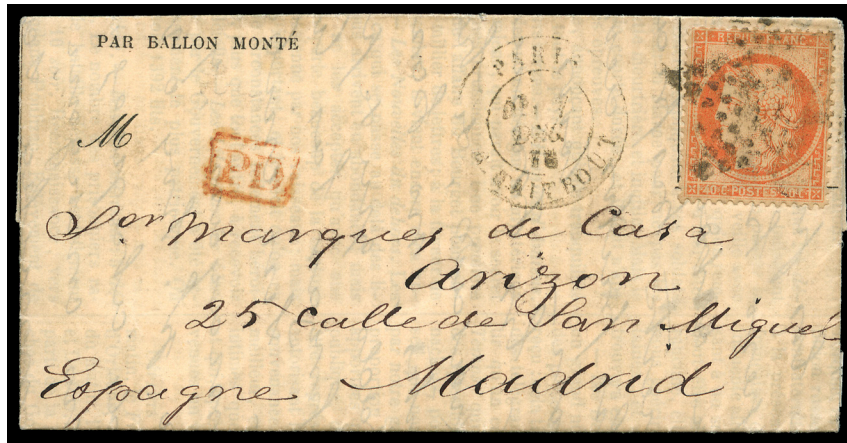 PAR BALLON MONTÉ
PARIS
DEC.
R. TAITBOUT
REPUB. FRANC.
40 C. POSTES 40 C.
M
PD
Sor Marques de Casa
Arizon
25 calle de San Miguel
Espagne Madrid